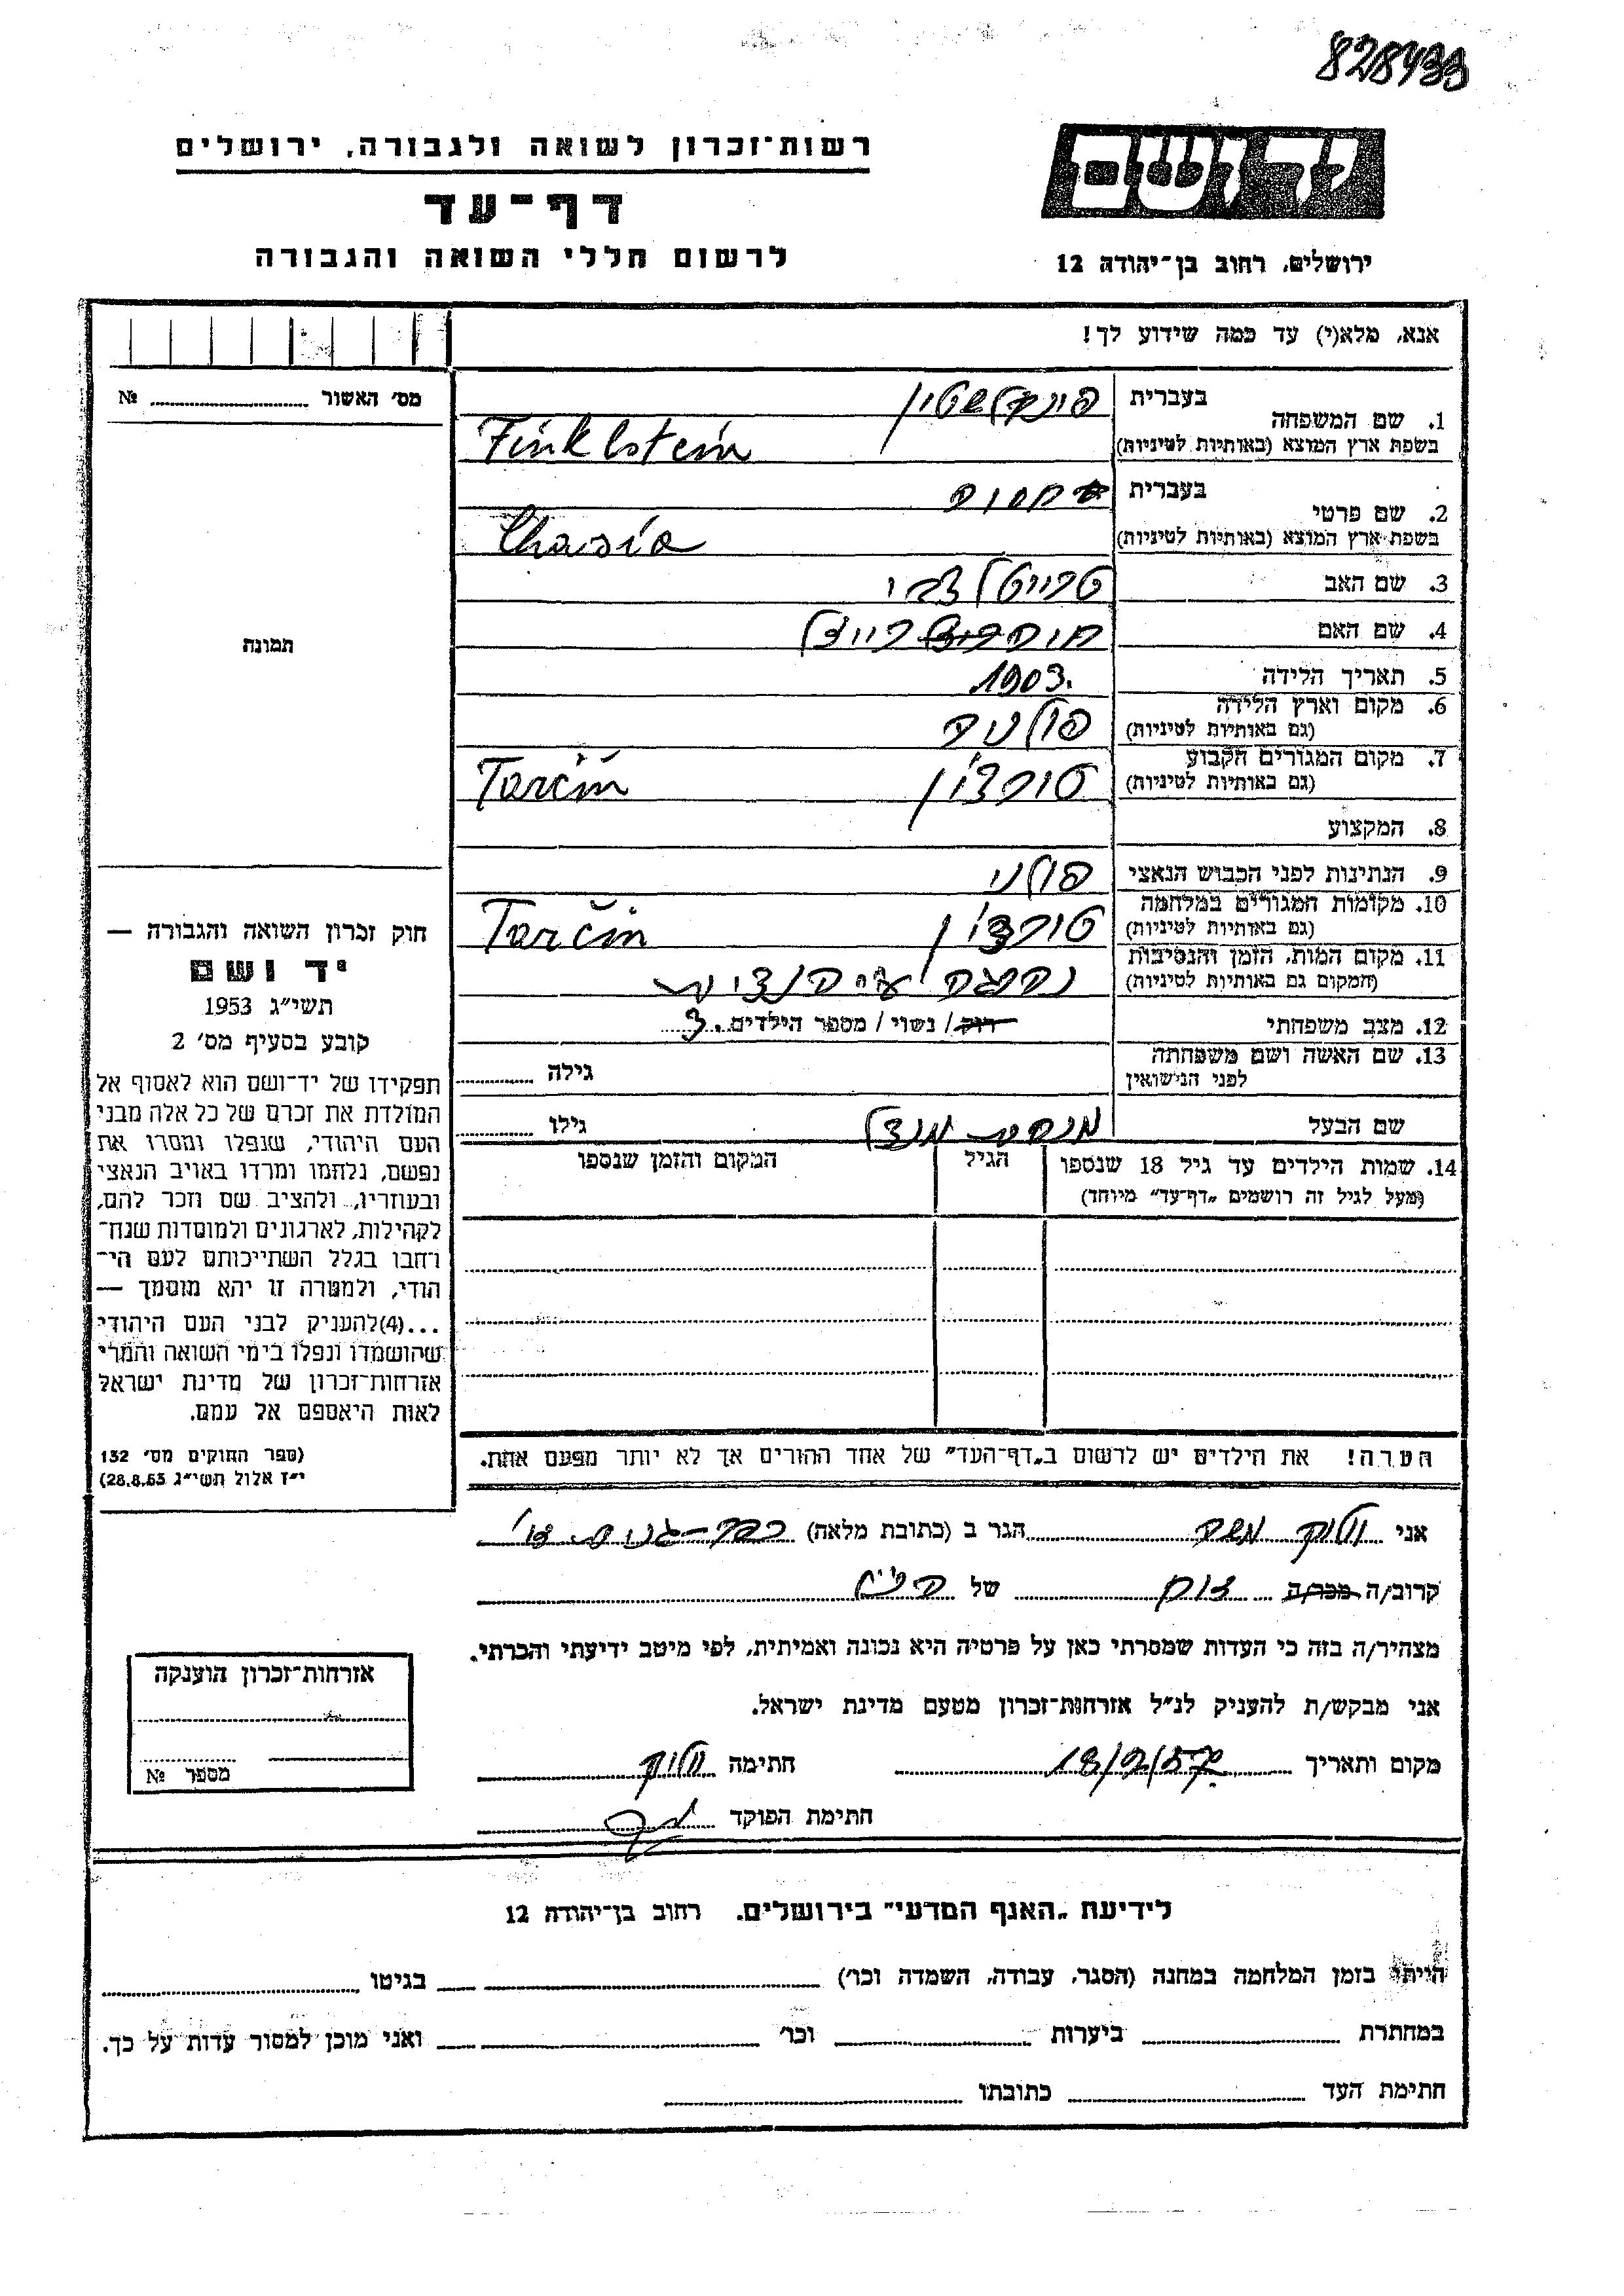 828433
רשות־זכרון לשואה ולגבורה, ירושלים
דף־עד
לרשום חללי השואה והגבורה
יד ושם
ירושלים, רחוב בן־יהודה 12
אנא, מלא(י) עד כמה שידוע לך!
מס׳ האשור № 
1. שם המשפחה
בעברית פינקלשטיין
בשפת ארץ המוצא (באותיות לטיניות) Finklstein
2. שם פרטי
בעברית
בשפת ארץ המוצא (באותיות לטיניות) Chasia
3. שם האב
4. שם האם
5. תאריך הלידה 1903.
6. מקום וארץ הלידה
(גם באותיות לטיניות) פולניה
7. מקום המגורים הקבוע
(גם באותיות לטיניות) טורצ׳ין Tarčin
8. המקצוע
9. הנתינות לפני הכבוש הנאצי פולני
10. מקומות המגורים במלחמה
(גם באותיות לטיניות) טורצ׳ין Tarčin
11. מקום המות, הזמן והנסיבות
(המקום גם באותיות לטיניות) נהרגה ע״י הנצים
12. מצב משפחתי רוק / נשוי / מספר הילדים 3.
13. שם האשה ושם משפחתה
לפני הנישואין גילה
שם הבעל גילו
14. שמות הילדים עד גיל 18 שנספו
(מעל לגיל זה רושמים „דף־עד״ מיוחד)
הגיל
המקום והזמן שנספו
הערה! את הילדים יש לרשום ב„דף־העד״ של אחד ההורים אך לא יותר מפעם אחת.
תמונה
חוק זכרון השואה והגבורה —
יד ושם
תשי״ג 1953
קובע בסעיף מס׳ 2
תפקידו של יד־ושם הוא לאסוף אל
המולדת את זכרם של כל אלה מבני
העם היהודי, שנפלו ומסרו את
נפשם, נלחמו ומרדו באויב הנאצי
ובעוזריו, ולהציב שם וזכר להם,
לקהילות, לארגונים ולמוסדות שנח־
רחבו בגלל השתייכותם לעם הי־
הודי, ולמטרה זו יהא מוסמך —
...(4)להעניק לבני העם היהודי
שהושמדו ונפלו בימי השואה והמרי
אזרחות־זכרון של מדינת ישראל
לאות היאספם אל עמם.
(ספר החוקים מס׳ 132
י״ז אלול תשי״ג 28.8.53)
אני משה הגר ב (כתובת מלאה)
קרוב/ה מכר/ה של
מצהיר/ה בזה כי העדות שמסרתי כאן על פרטיה היא נכונה ואמיתית, לפי מיטב ידיעתי והכרתי.
אני מבקש/ת להעניק לנ״ל אזרחות־זכרון מטעם מדינת ישראל.
מקום ותאריך 18/2/57 חתימה
חתימת הפוקד
אזרחות־זכרון הוענקה
מספר №
לידיעת „האגף המדעי״ בירושלים. רחוב בן־יהודה 12
הייתי בזמן המלחמה במחנה (הסגר, עבודה, השמדה וכו׳) בגיטו
במחתרת ביערות וכו׳ ואני מוכן למסור עדות על כך.
חתימת העד כתובתו